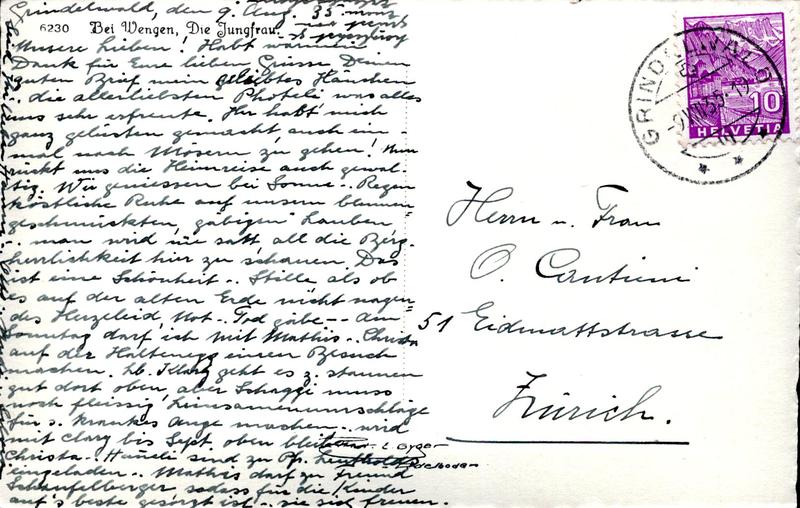 Grindelwald, den 9. Aug. 35
6230 Bei Wengen, Die Jungfrau.
Unsere Lieben! Habt wärmsten
Dank für Eure lieben Grüsse Deinen
guten Brief mein geliebtes Hanschen
.. die allerliebsten Photeli was alles
uns sehr erfreute. Ihr habt mich
ganz gelüsten gemacht auch ein-
mal nach Mösern zu gehen! Nun
rückt uns die Heimreise auch gewal-
tig. Wir geniessen bei Sonne .. Regen
köstliche Ruhe auf unsern blumen
geschmückten, gäbigen Lauben
.. man wird nie satt all die Berg-
herrlichkeit hier zu schauen. Das
ist eine Schönheit .. Stille als ob
es auf der alten Erde nicht nagen
des Herzeleid, Not .. Tod gäbe -- Am
Sonntag darf ich mit Mathis .. Christa
auf der Haltenegg einen Besuch
machen. Lb. Klary geht es z. staunen
gut dort oben, aber Schaggi muss
noch fleissig Leinsamenumschläge
für s. krankes Auge machen .. wird
mit Clary bis Sept. oben bleiben
Christa .. sind zu Pf.
eingeladen .. Mathis darf zu Freund
Schaufelberger sodass für die Kinder
auf's beste gesorgt ist .. sie sich freuen.
GRINDELWALD
10
HELVETIA
Herrn u. Frau
O. Cantieni
51 Eidmattstrasse
Zürich.